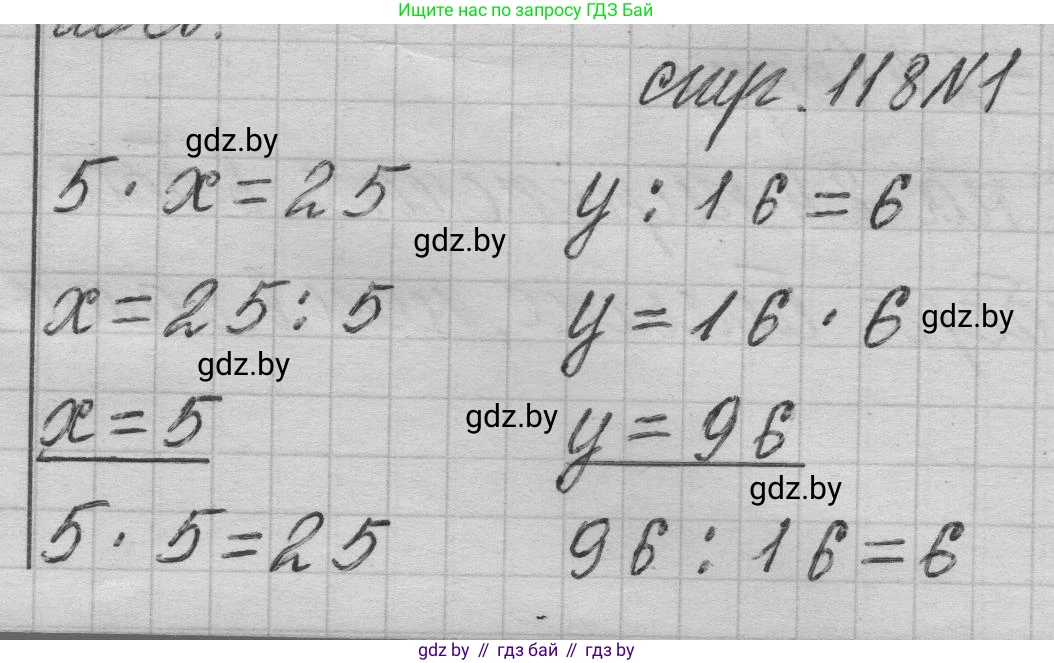 Ищите нас по запросу ГДЗ Бай
стр. 118 N1
gdz.by
5 · x = 25
y : 16 = 6
gdz.by
x = 25 : 5
y = 16 · 6
gdz.by
gdz.by
x = 5
gdz.by
y = 96
gdz.by
5 · 5 = 25
96 : 16 = 6
gdz by // гдз бай // гдз by